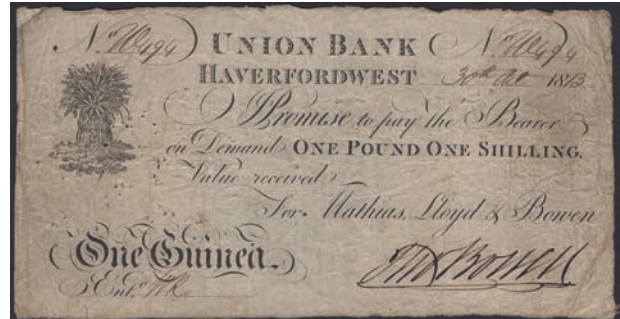 No. W494 UNION BANK No. W494
HAVERFORDWEST 30th Oct 1813
I Promise to pay the Bearer
on Demand ONE POUND ONE SHILLING.
Value received
For Mathias, Lloyd & Bowen
One Guinea.
Entd.